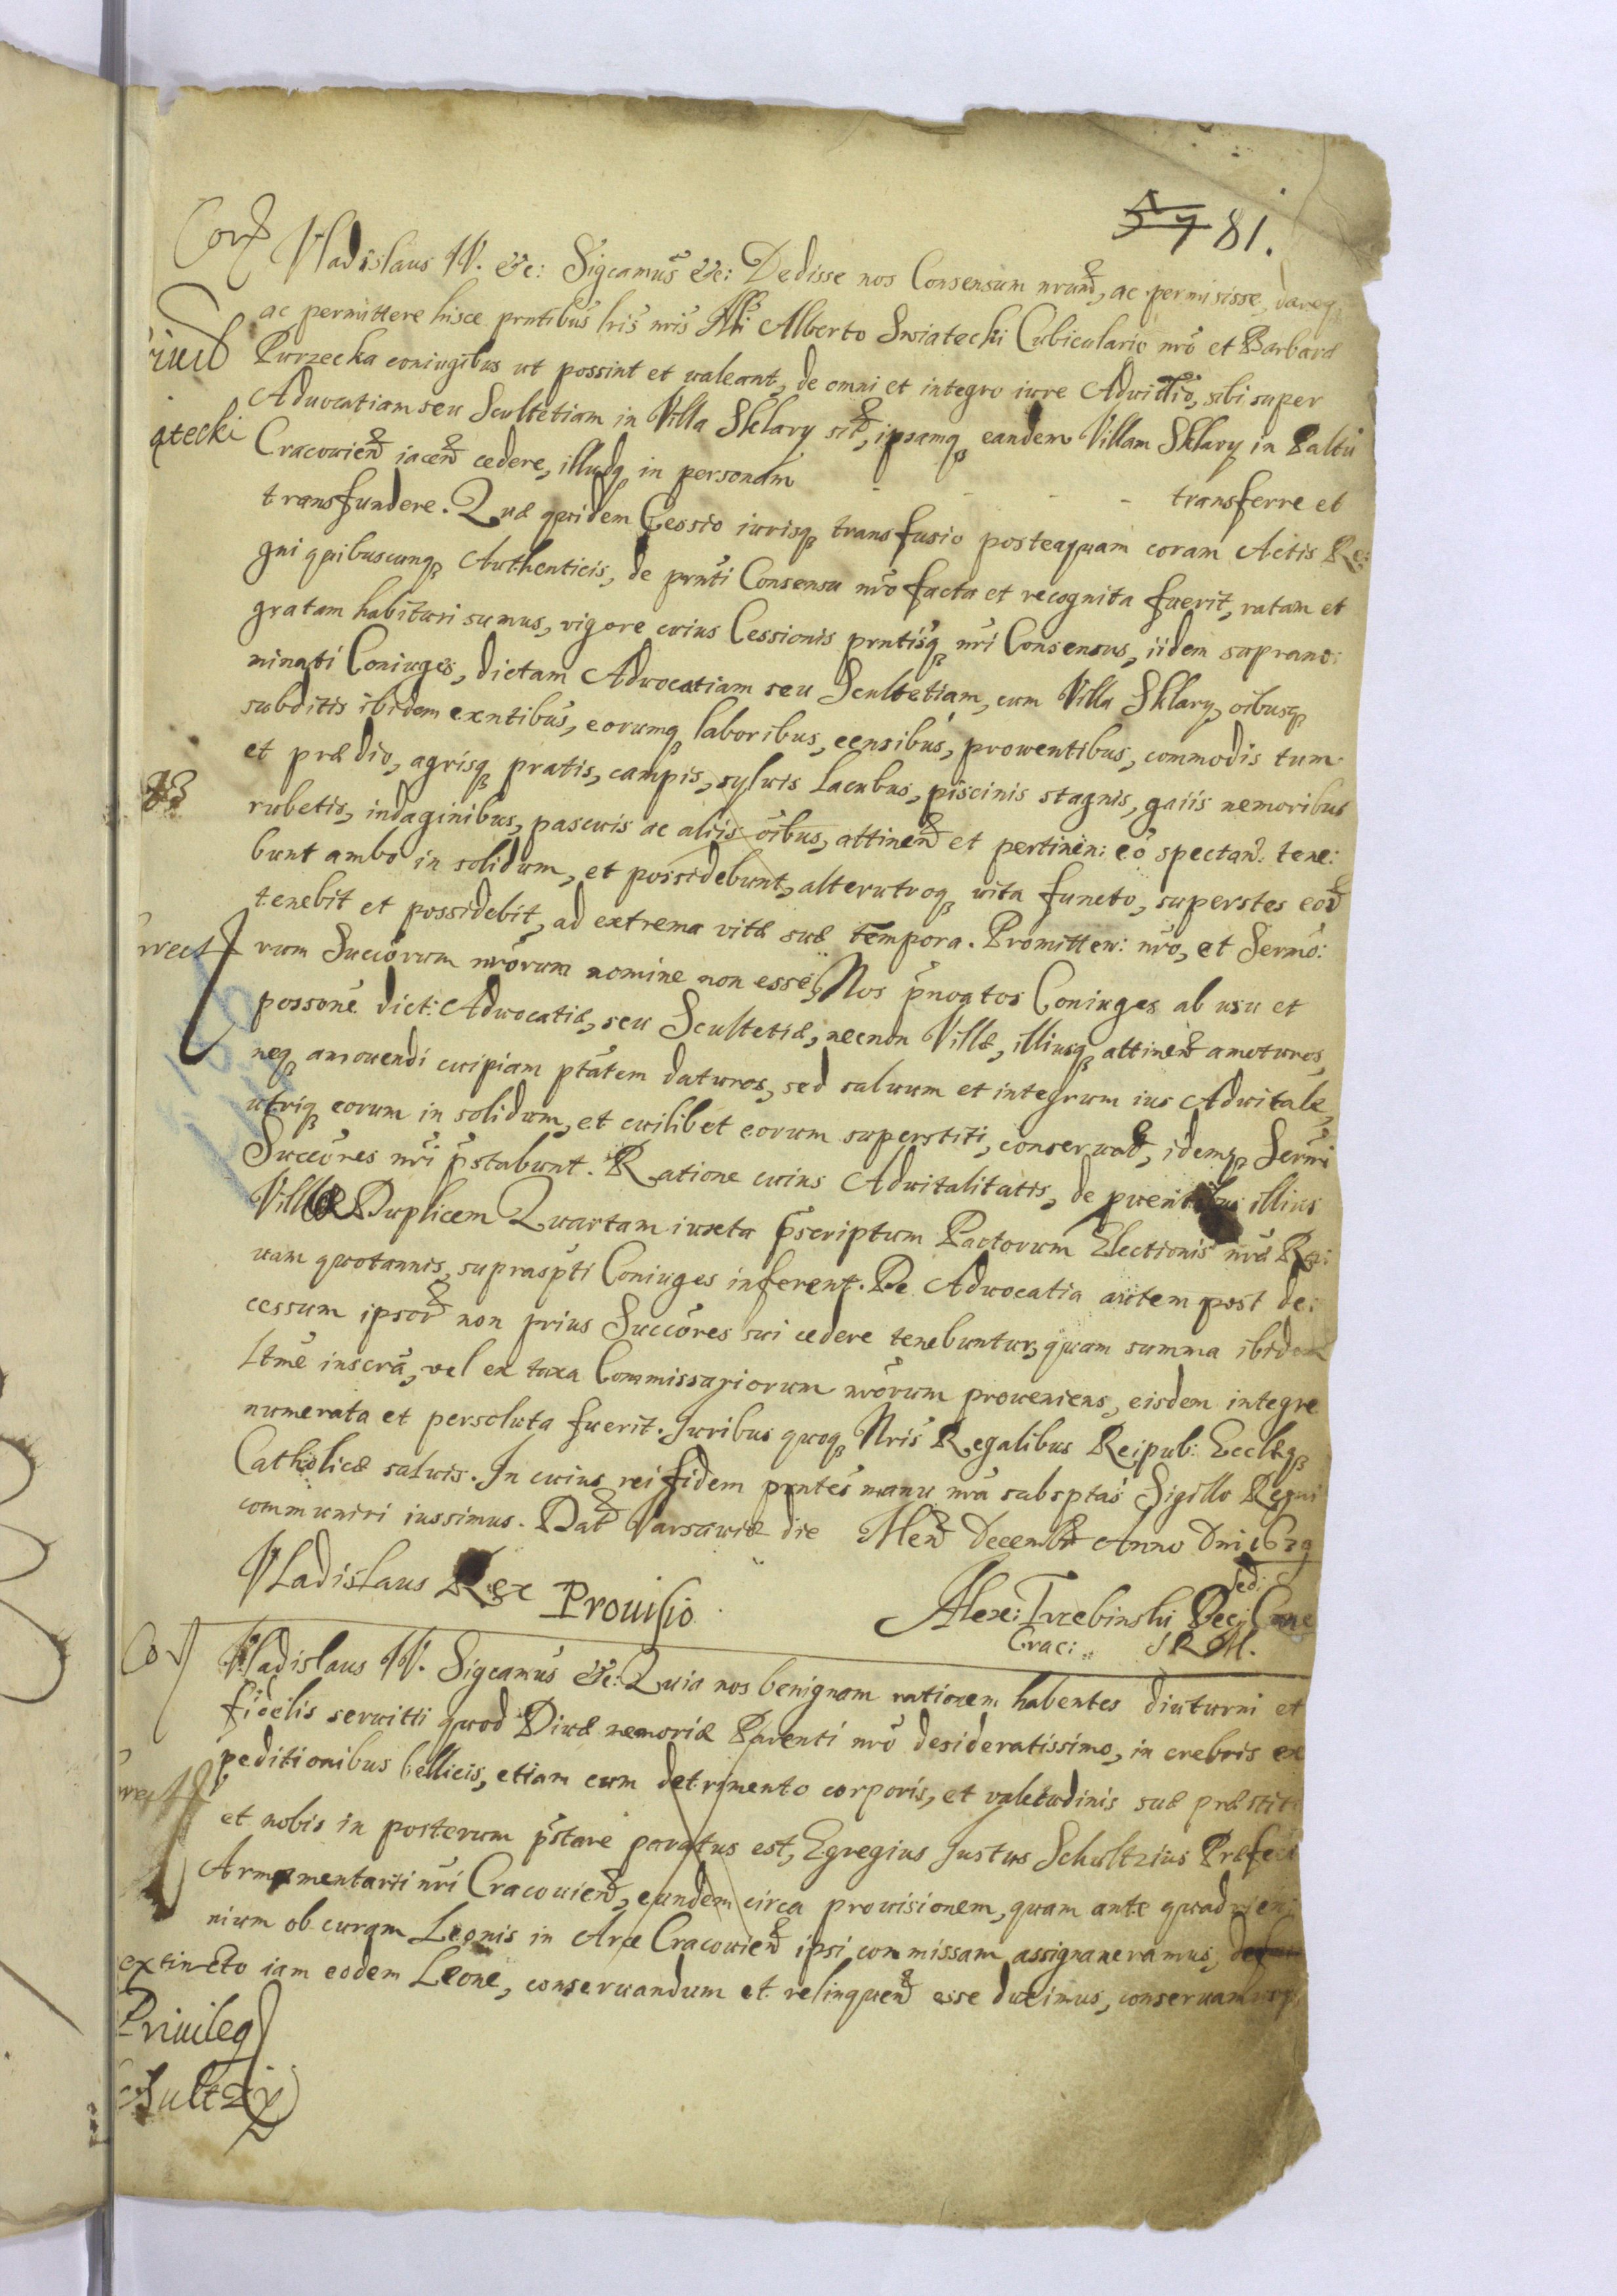 57 81.
Cor
Vladislaus IV. etc: Sigcamus etc: Dedisse nos Consensum nrum, ac permisisse, dareq
ac permittere hisce pntibus lris nris Alberto Swiatecki Cubiculario nro et Barbara
Purzecka coniugibus ut possint et valeant, de omni et integro iure Advitlio, sibi super
Advocatiam seu Scultetiam in Villa Sklary sit, ipsamq eandem Villam Sklary in Paltu
atecki
Cracovien iacen cedere, illudq in personam - - - transferre et
transfundere. Quæ quidem Cessio iurisq transfusio posteaquam coram Actis Re:
gni quibuscunq Authenticis, de pnti Consensu nro facta et recognita fuerit, ratam et
gratam habituri sumus, vigore cuius Cessionis pntisq nri Consensus, iidem suprano:
minati Coniuges, dictam Advocatiam seu Scultetiam, cum Villa Sklary, oibusq
subditis ibidem exntibus, eorumq laboribus, censibus, proventibus, commodis tum
et prædio, agrisq pratis, campis, sylvis Lacubus, piscinis stagnis, gaiis nemoribus
rubetis, indaginibus, pascuis ac aliis oibus, attinen et pertinen: eo spectan. tene:
bunt ambo in solidum, et possidebunt, alterutroq vita functo, superstes eor
tenebit et possidebit, ad extrema vitæ suæ tempora. Promitten: nro, et Sermo:
rrect
rum Succorum nrorum nomine non esse, Nos pnoatos Coniuges ab usu et
possone dict: Advocatiæ, seu Scultetiæ, necnon Villæ, illiusq attinen amoturos,
neq amovendi cuipiam ptatem daturos, sed salvum et integrum ius Advitale,
utriq eorum in solidum, et cuilibet eorum superstiti, conservat, idemq Sermi
Succores nri pstabunt. Ratione cuius Advitalitatis, de pventibus illius
Villæ Duplicem Quartam iuxta pscriptum Pactorum Electionis nræ Ra:
vam quotannis, supraspti Coniuges inferent. De Advocatia autem post de:
cessum ipsor non prius Succores sui cedere tenebuntur, quam summa ibidem
Ltme inscra, vel ex taxa Commissariorum nrorum proveniens, eisdem integre
numerata et persoluta fuerit. Iuribus quoq Nris Regalibus Reipub: Ecclæq
Catholicæ salvis. In cuius rei fidem pntes manu nra subsptas Sigillo Regni
communiri iussimus. Dat Varsaviæ die Men Decemb Anno Dni 1639
Vladislaus Rex
Provisio
Alex: Trzebinski Dec: Canc
Crac: S R M.
Cor
Vladislaus IV. Sigcamus etc: Quia nos benignam rationem habentes diuturni et
fidelis servitii quod Divæ memoriæ Parenti nro desideratissimo, in crebris ex
peditionibus bellicis, etiam cum detrimento corporis, et valetudinis suæ præstit
et nobis in posterum pstare paratus est, Egregius Justus Schultzius Præfect
Armamentarii nri Cracovien, eundem circa provisionem, quam ante quadrien
nium ob curam Leonis in Arce Cracovien ipsi commissam assignaveramus,
extincto iam eodem Leone, conservandum et relinquen esse duximus, conservamusq
Privileg
hultzij